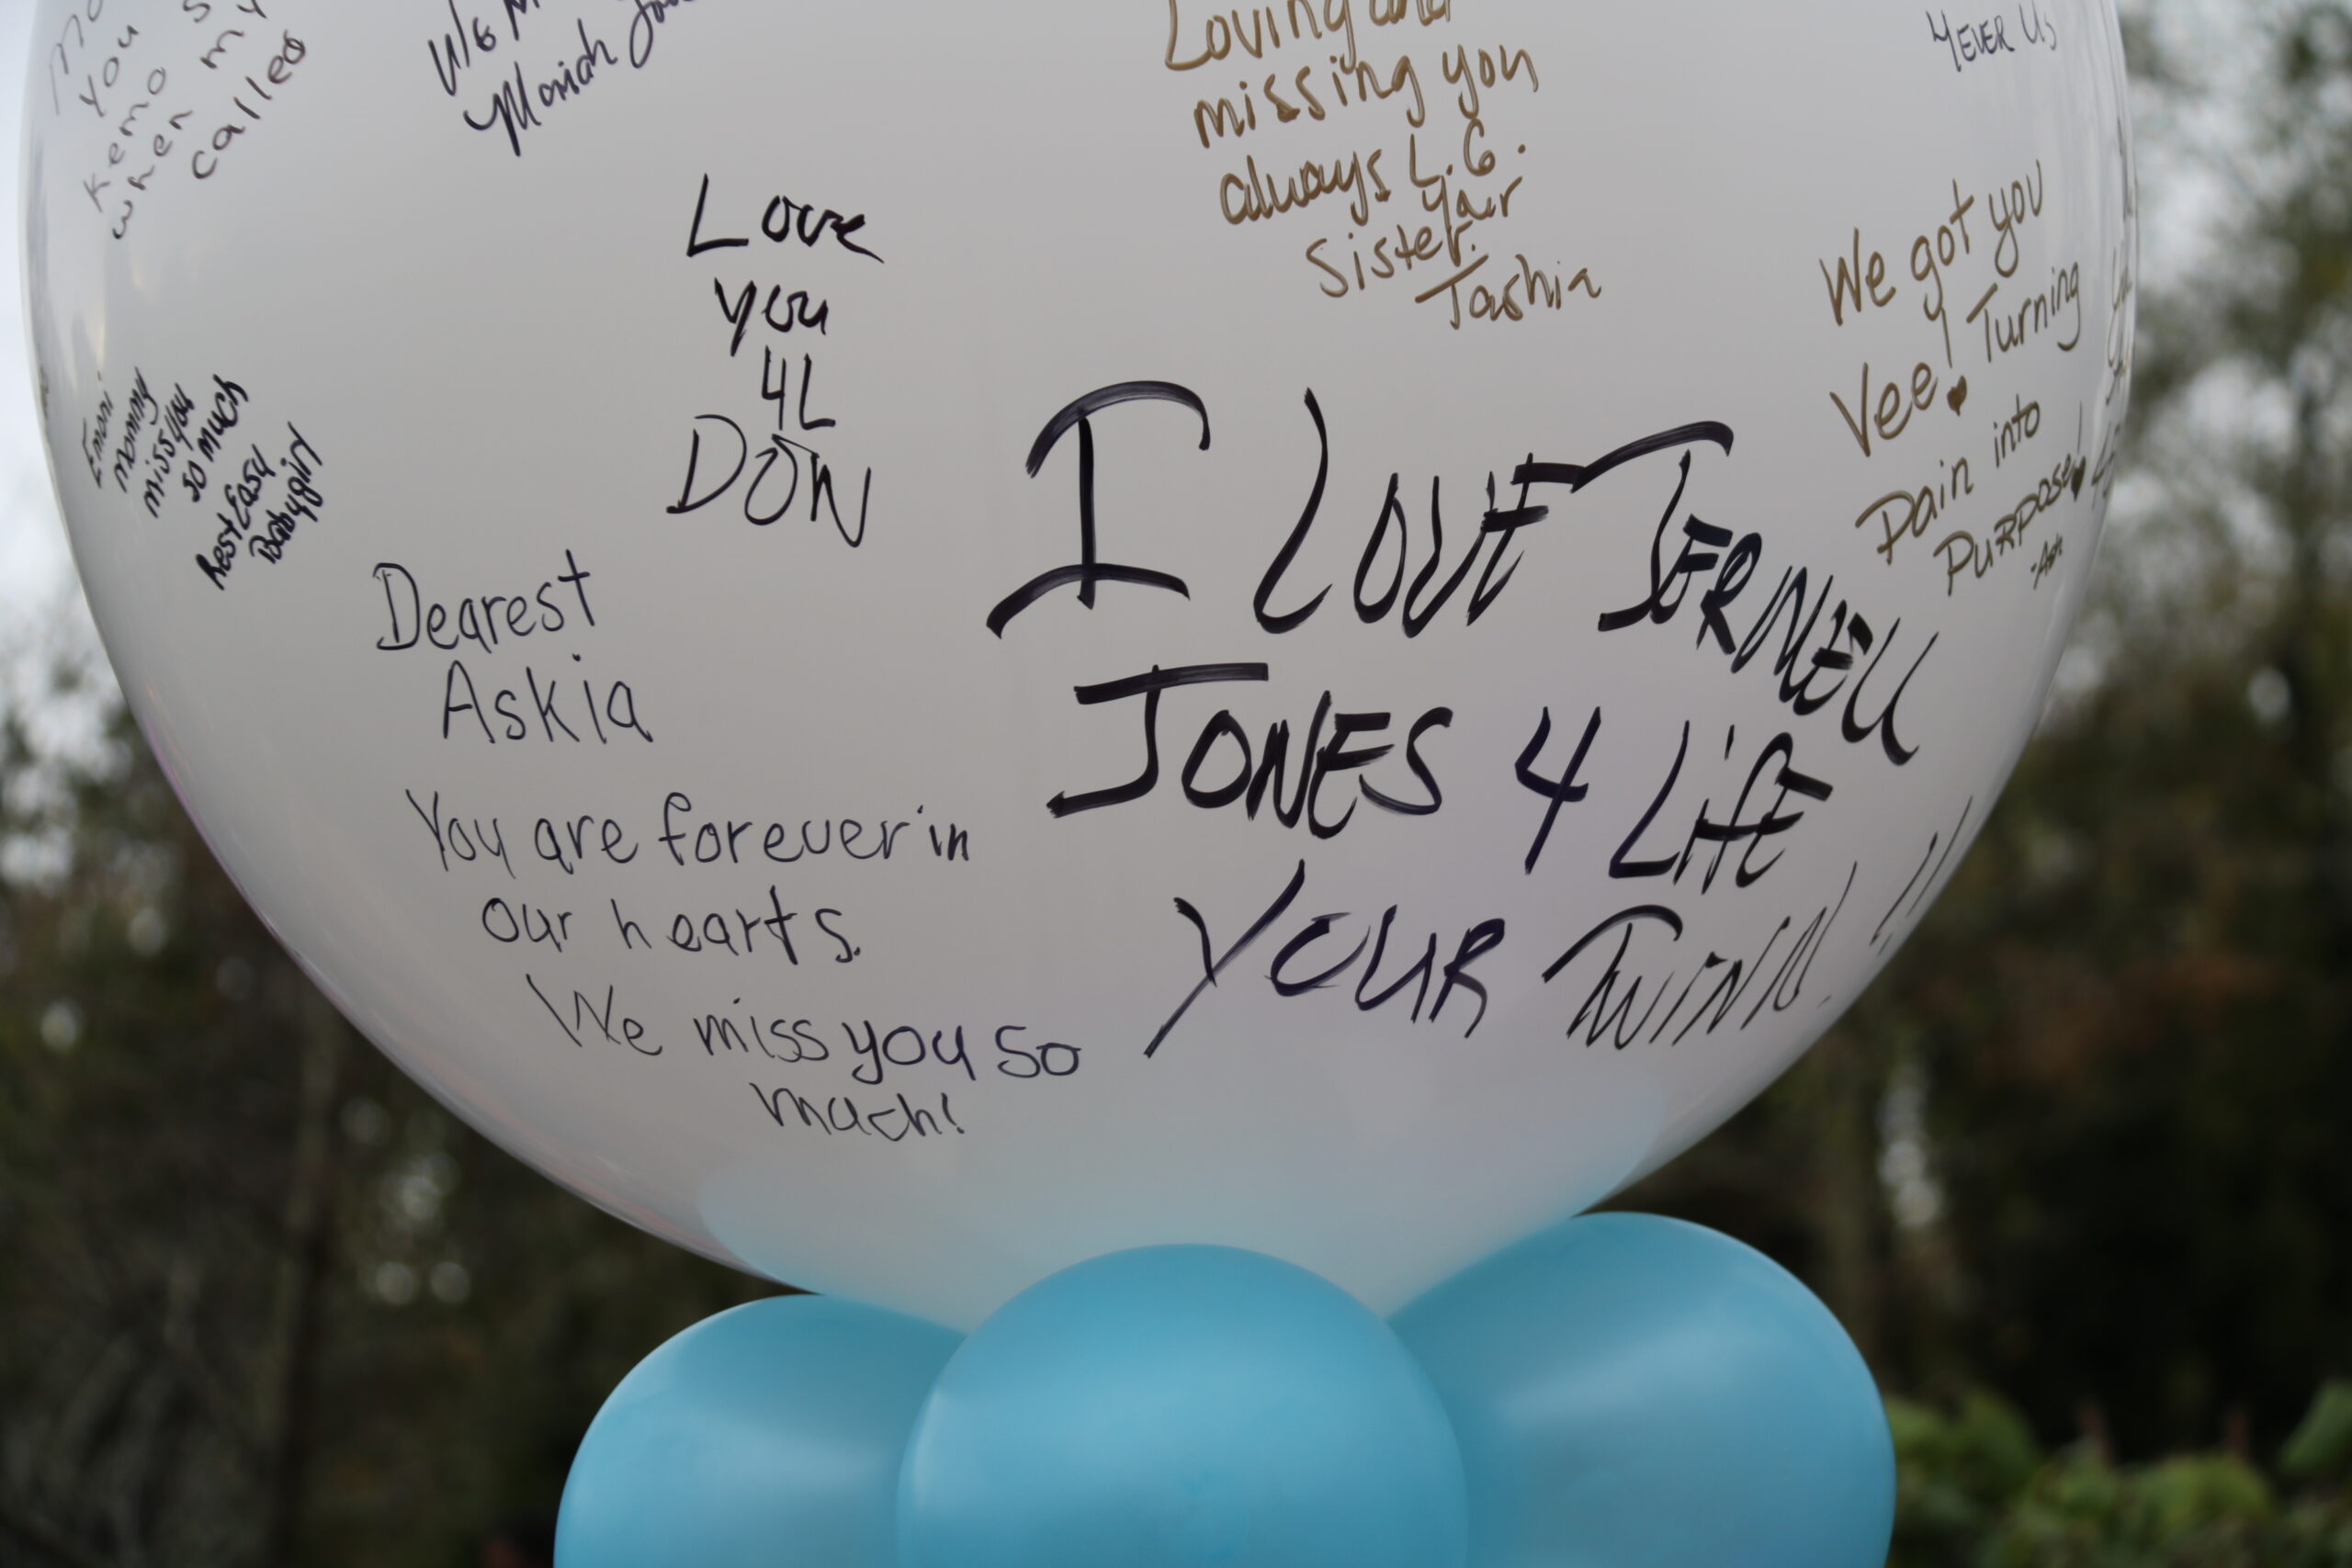 you
Kemo my
when
called
Moriah
Loving and
missing you
always L.G.
Your
Sister.
Tashia
4EVER US
Love
you
4L
DON
We got you
Vee! Turning
Pain into
Purpose!
-Ash
Emoni
mommy
miss you
so much
Rest Easy
Babygirl
Dearest
Askia
You are forever in
our hearts.
We miss you so
much!
I LOVE JERNELL
JONES 4 LiFE
YOUR TWiNN!!!